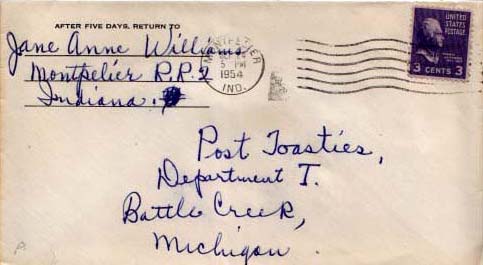 AFTER FIVE DAYS, RETURN TO
Jane Anne Williams
Montpelier R.R. 2
Indiana.
MONTPELIER
5 PM
1954
IND.
UNITED
STATES
POSTAGE
3 CENTS 3
Post Toasties,
Department T.
Battle Creek,
Michigan.